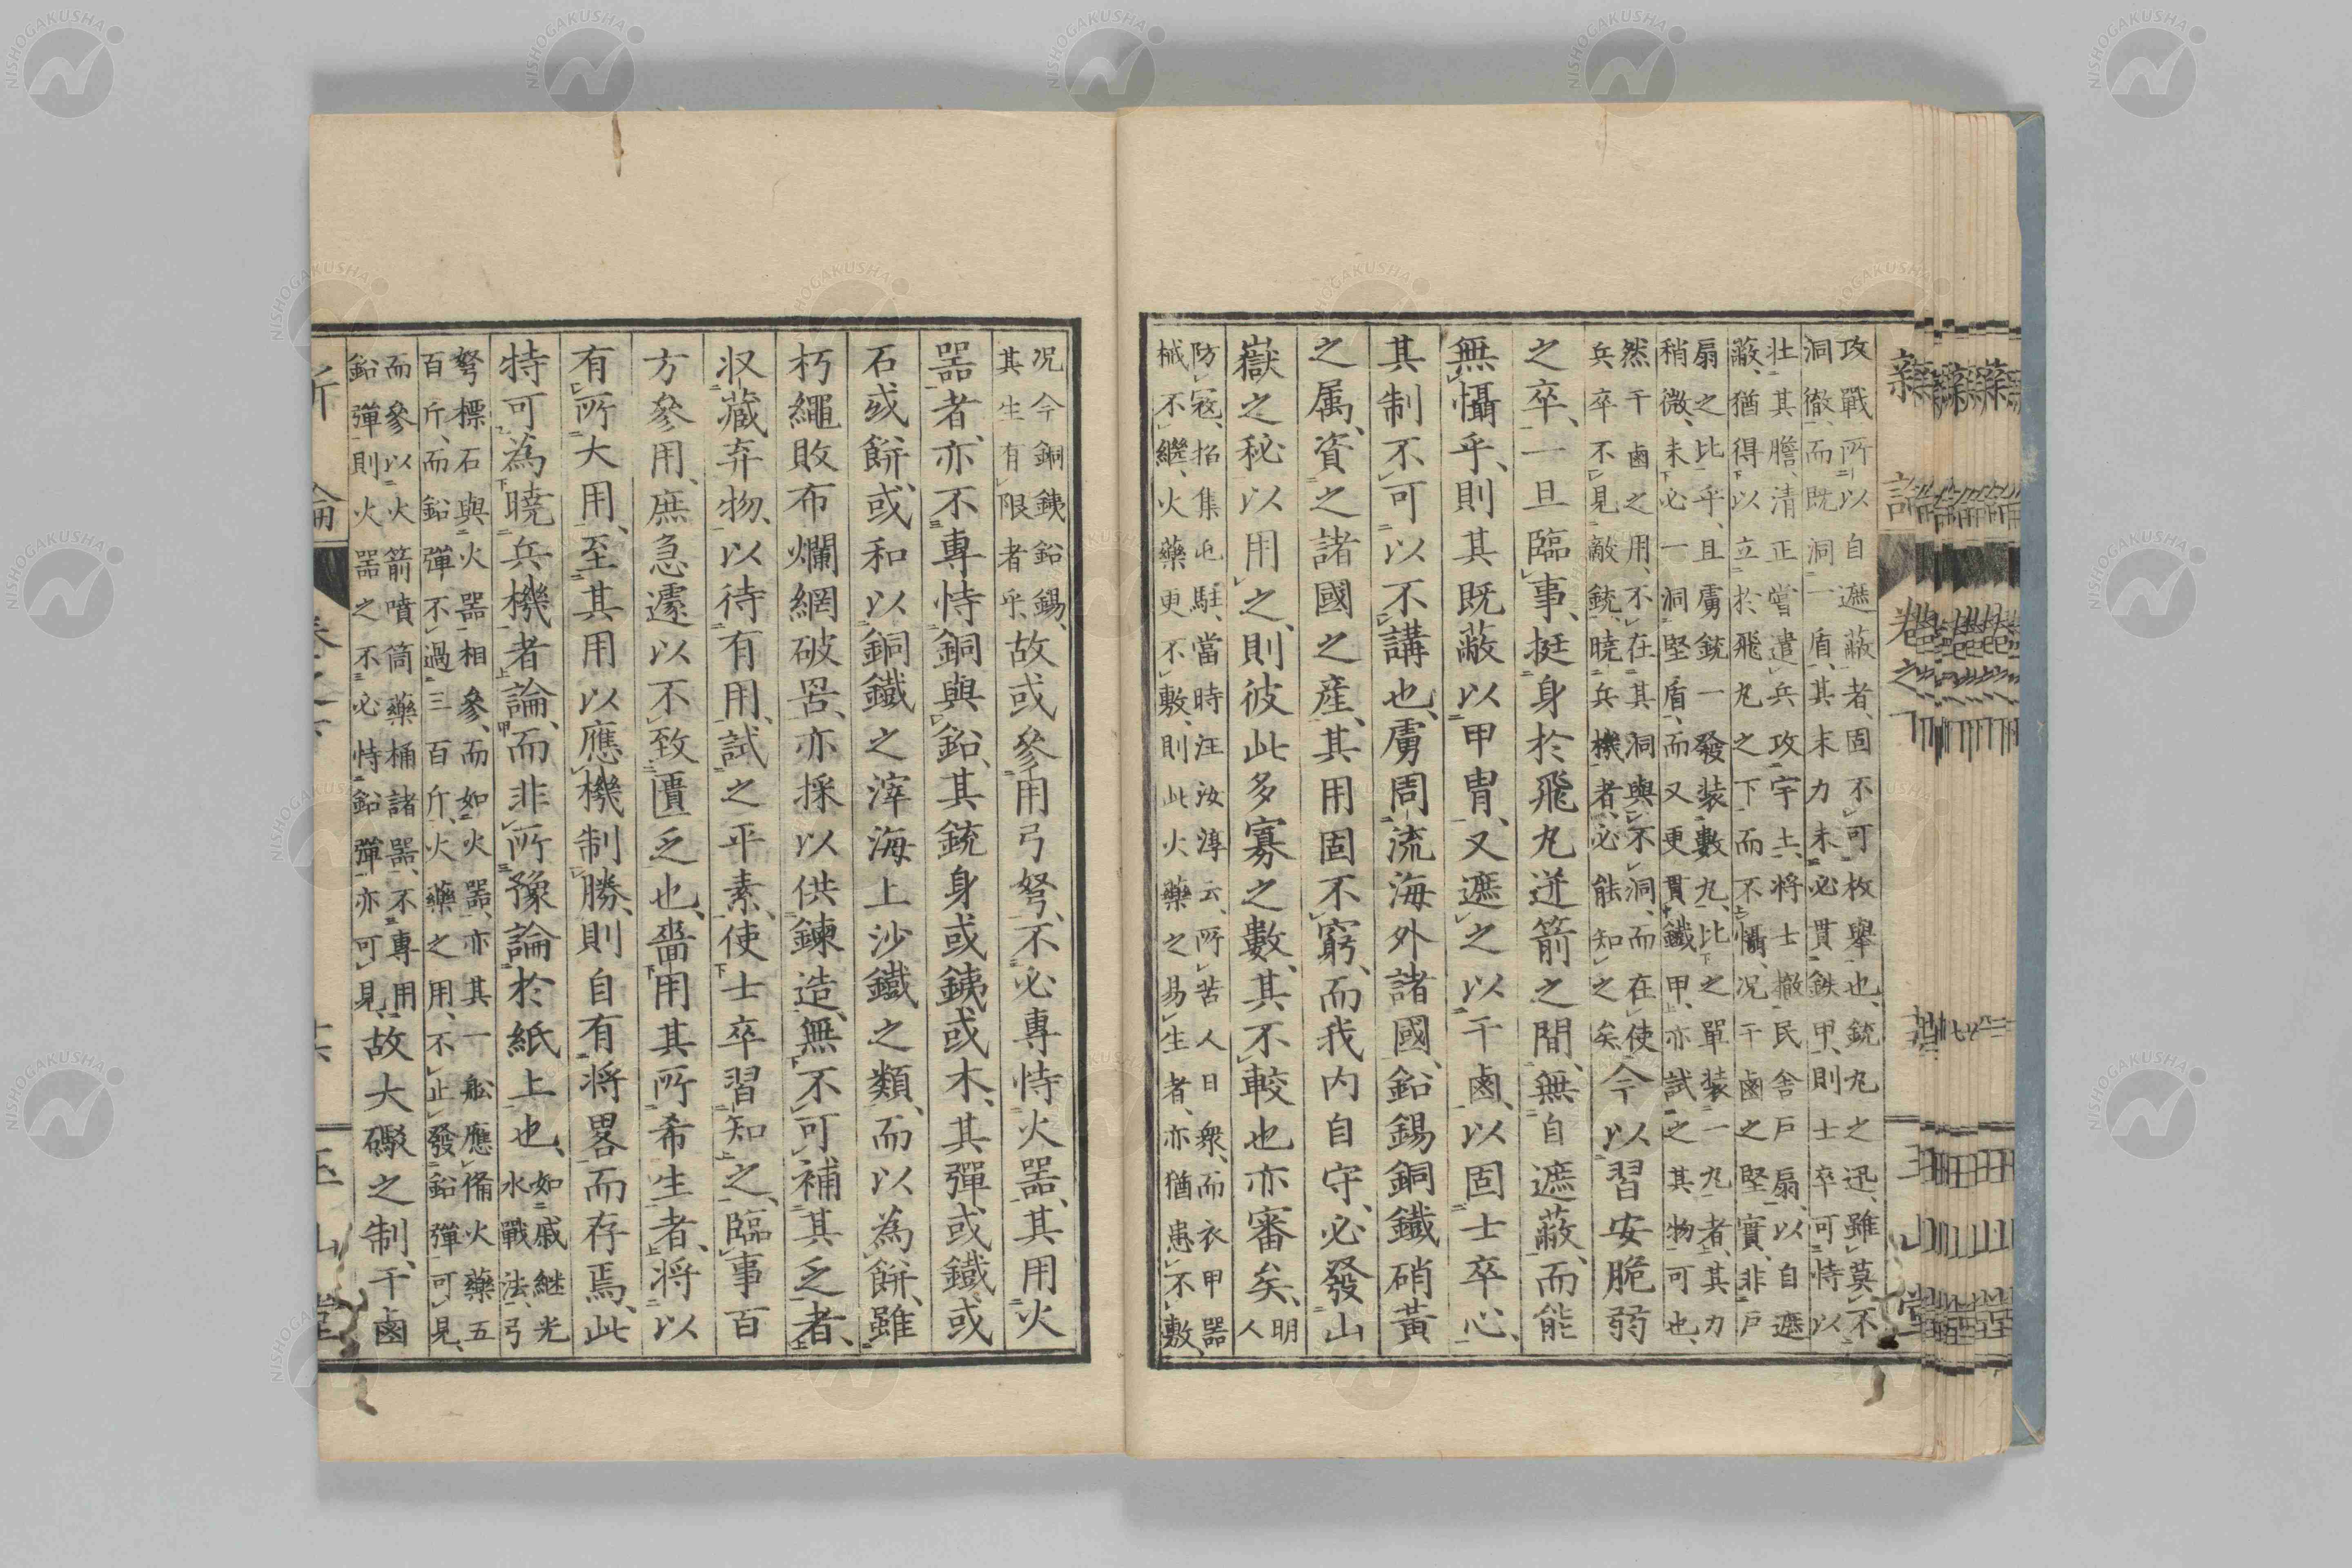 攻戰所以自遮蔽者固不可枚舉也、銃丸之迅、雖莫不
洞徹、而既洞一盾、其末力未必貫鉄甲、則士卒可恃以
壯其膽、清正嘗遣兵攻宇土、將士撤民舍戶扇、以自遮
蔽、猶得以立於飛丸之下、而不懾、况干鹵之堅實、非戶
扇之比乎、且虜銃一發裝數丸、比之單裝一丸者、其力
稍微、未必一洞堅盾、而又更貫鐵甲、亦試之其物可也、
然干鹵之用、不在其洞與不洞、而在使
兵卒不見敵銃、曉兵機者、必能知之矣
今以習安脆弱
之卒、一旦臨事、挺身於飛丸迸箭之間、無自遮蔽、而能
無懾乎、則其既蔽以甲冑、又遮之以干鹵、以固士卒心、
其制不可以不講也、虜周流海外諸國、鉛錫銅鐵硝黃
之属、資之諸國之產、其用固不窮、而我内自守、必發山
嶽之秘以用之、則彼此多寡之數、其不較也亦審矣、
明
人
防寇、招集屯駐、當時汪汝淳云、所苦人日衆、而衣甲器
械不繼、火藥更不敷、則此火藥之易生者、亦猶患不敷、
况今銅銕鉛錫、
其生有限者乎、
故或參用弓弩、不必專恃火器、其用火
器者、亦不專恃銅與鉛、其銃身或銕或木、其彈、或鐵或
石或餅、或和以銅鐵之滓海上沙鐵之類、而以為餅、雖
朽繩敗布爛網破罟、亦採以供鍊造、無不可補其乏者、
収藏弃物、以待有用、試之平素、使士卒習知之、臨事百
方參用、庶急遽以不致匱乏也、嗇用其所希生者、將以
有所大用、至其用以應機制勝、則自有將畧而存焉、此
特可為曉兵機者論、而非所豫論於紙上也、
如戚継光
水戰法、弓
弩標石與火器相參、而如火器、亦其一舩應備火藥五
百斤、而鉛彈不過三百斤、火藥之用、不止發鉛彈可見、
而參以火箭噴筒藥桶諸器、不專用
鉛彈、則火器之不必恃鉛彈、亦可見
故大礮之制、干鹵